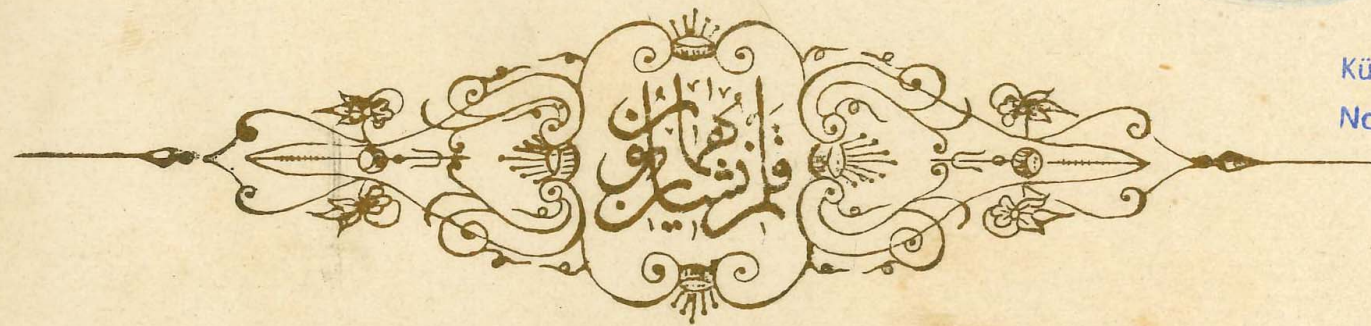 قلم نشان همايون
Kü
No